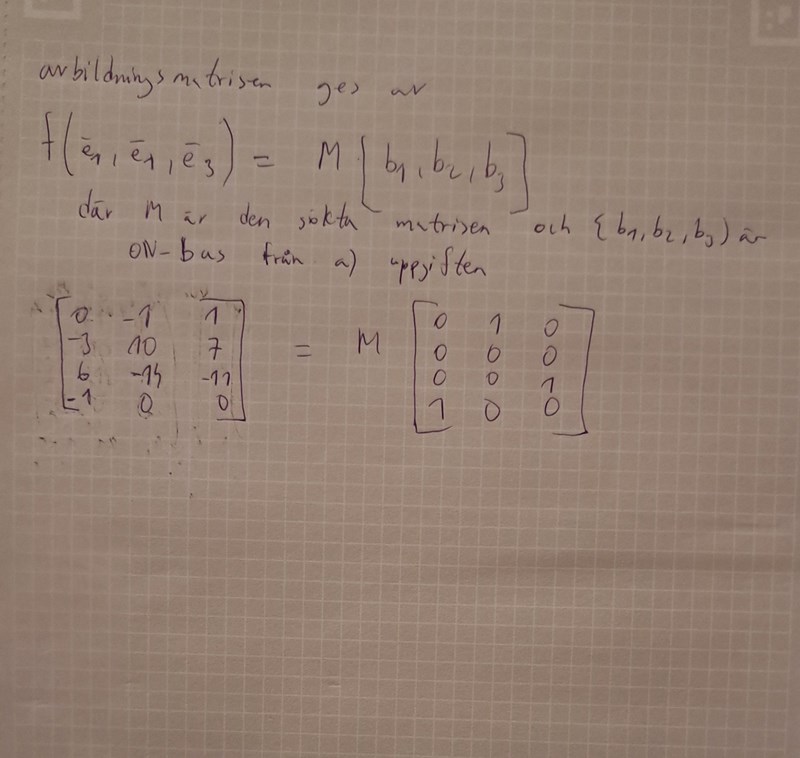 avbildningsmatrisen ges av
f(ē1, ē1, ē3) = M [b1, b2, b3]
där M är den sökta matrisen och {b1, b2, b3) är
ON-bas från a) uppgiften
[0 -1 1
-3 10 7
6 -14 -11
-1 0 0] = M [0 1 0
0 0 0
0 0 1
1 0 0]